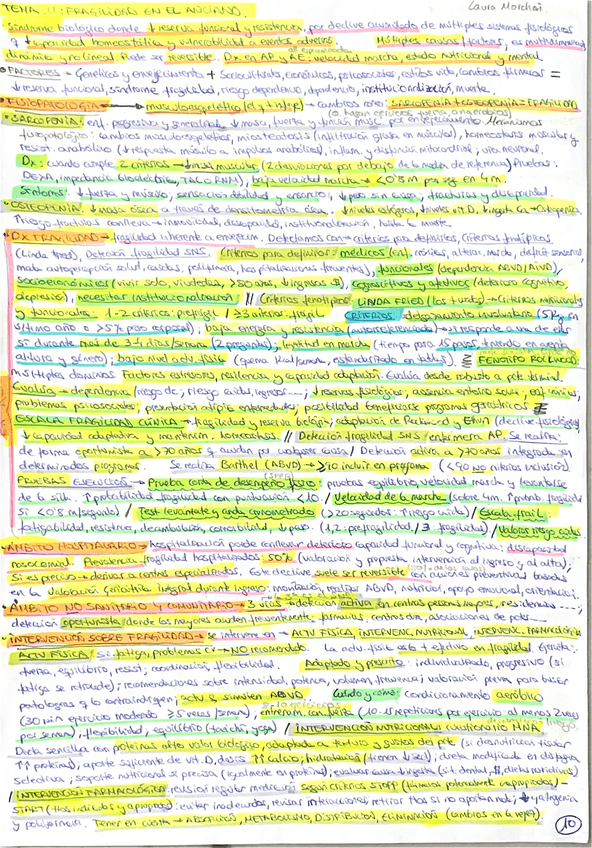 TEMA 11: FRAGILIDAD EN EL ANCIANO. Laura Morchón
Síndrome biológico donde ↓ reserva funcional y resistencia, por declive acumulado de múltiples sistemas fisiológicos
y ↓ capacidad homeostática y vulnerabilidad a eventos adversos. Múltiples causas/factores, es multidimensional
dinámica y no lineal. Puede ser reversible. Dx en AP y AE: velocidad marcha, estado nutricional y mental.
• FACTORES → Genéticos y envejecimiento + socioculturales, económicos, psicosociales, estilos vida, cambios físicos =
↓ reserva funcional, síndrome fragilidad, riesgo dependencia, dependencia, institucionalización, muerte.
• FISIOPATOLOGÍA → musculoesquelética → cambios SARCOPENIA + OSTEOPENIA = FRAGILIDAD
• SARCOPENIA: enf. progresiva y generalizada ↓ masa, fuerza y función musc. por envejecimiento. Mecanismos
fisiopatología: cambios musculoesqueléticos, mioesteatosis (infiltración grasa en músculo), homeostasis muscular y
resist. anabólica (↓ respuesta músculo a impulsos anabólicos), inflam. y disfunción mitocondrial, vía neuronal.
Dx: cuando cumple 2 criterios → ↓ masa muscular (2 desviaciones por debajo de la media de referencia) Pruebas:
DEXA, impedancia bioeléctrica, TAC o RNM), baja velocidad marcha → <0'8 m por seg en 4 m.
Síntomas: ↓ fuerza y músculo, sensación debilidad y cansancio, ↓ peso sin causa, fracturas y discapacidad.
• OSTEOPENIA: ↓ masa ósea a través de densitometría ósea. ↓ niveles estrógenos, ↓ niveles vit. D, ↓ ingesta Ca → Osteopenia.
Riesgo fracturas conlleva → inmovilidad, discapacidad, institucionalización, hasta la muerte.
• DX FRAGILIDAD → fragilidad inherente a envejecim. Detectamos con → criterios para definirlos, criterios fenotípicos
(Linda Fried), Detección fragilidad SNS. Criterios para definir: médicos (enf. crónicas, alterac. marcha, déficit sensorial,
mala autopercepción salud, caídas, polifarmacia, hospitalizaciones frecuentes), funcionales (dependencia ABVD/AIVD),
socioeconómicos (vivir solo, viudedad, >80 años, ↓ ingresos $), cognoscitivos y afectivos (deterioro cognitivo,
depresión), necesitar institucionalización // Criterios fenotipos: LINDA FRIED
y funcionales: 1-2 criterios: prefrágil / ≥3 criterios: frágil CRITERIOS: adelgazamiento involuntario (5 Kg en
último año o >5% peso corporal); baja energía y resistencia (autorreferenciado) → si responde a una de ellas
sí durante más de 3-4 días/semana (2 preguntas); lentitud en marcha (tiempo para 15 pasos, teniendo en cuenta
altura y género); bajo nivel activ. física (quema Kcal/semana, estandarizado en tablas). FENOTIPO ROCKWOOD
múltiples dominios. Factores estresores, resiliencia y capacidad adaptación. Evalúa desde robusto a pcte terminal.
Evalúa → dependencia/riesgo de; riesgo caídas, ingresos...; ↓ reserva fisiológica, ausencia entorno social, enf. crónicas,
problemas psicosociales, presentación atípica enfermedades, posibilidad beneficiarse programas geriátricos
ESCALA FRAGILIDAD CLÍNICA → fragilidad y reserva biológ; adaptación de Rockwood y (declive fisiológico,
↓ capacidad adaptativa y mantenim. homeostasis. // Detección fragilidad SNS: enfermera AP. Se realiza
de forma oportunista a >70 años q acuden por cualquier causa / Detección activa a >70 años integrada en
determinados programas. Se realiza Barthel (ABVD) → ≥90 incluir en programa (<90 no criterios inclusión)
PRUEBAS EJECUCIÓN → Prueba corta de desempeño físico: pruebas equilibrio, velocidad marcha y levantarse
de la silla. ↑ probabilidad fragilidad con puntuación <10 / Velocidad de la marcha (sobre 4m. ↑ prob. fragilidad
si <0'8 m/segundo) / Test levántate y anda cronometrado (>20 segundos: ↑ riesgo caída) / Escala frail:
fatigabilidad, resistencia, deambulación, comorbilidad, ↓ peso. (1,2: prefragilidad / 3 fragilidad) / Valoras riesgo caída.
• ÁMBITO HOSPITALARIO → hospitalización puede conllevar deterioro capacidad funcional y cognitiva: discapacidad
nosocomial. Prevalencia fragilidad hospitalizados: 50% (valoración y propuesta intervención al ingreso y al alta);
si es preciso → derivar a centros especializados. Este declive suele ser reversible con acciones preventivas basadas
en la Valoración Geriátrica Integral durante ingreso: movilización, realizar ABVD, nutrición, apoyo emocional, orientación.
• ÁMBITO NO SANITARIO Y COMUNITARIO → 3 vías: detección activa en centros personas mayores, residencias...;
detección oportunista donde los mayores acuden frecuentemente: farmacias, centros día, asociaciones de pctes...
• INTERVENCIÓN SOBRE FRAGILIDAD → se interviene en → ACTV FÍSICA, INTERVENC. NUTRICIONAL, INTERVENC. FARMACOLÓGICA
ACTV FÍSICA: si fatiga, problemas CV → NO recomendado. La activ. física es lo + efectivo en fragilidad. Ejercita:
fuerza, equilibrio, resist, coordinación, flexibilidad. Adaptado y prescrito: individualizado, progresivo (si
fatiga se retrasa); recomendaciones sobre intensidad, potencia, volumen, frecuencia; valoración previa para buscar
patologías q lo contraindiquen; activ. q simulen ABVD. Cuándo y cómo: condicionamiento aeróbico
(30 min ejercicio moderado ≥5 veces/semana), entrenam. con fuerza (10-15 repeticiones por ejercicio al menos 2 veces
por semana); flexibilidad, equilibrio (taichi, yoga) / INTERVENCIÓN NUTRICIONAL: cuestionario MNA
Dieta sencilla con proteínas alto valor biológico, adaptada a textura y gustos del pcte (si desnutrición tienen
↑↑ proteínas), aporte suficiente de vit. D, dosis ↑ calcio, hidratación (tienen ↓ sed); dieta modificada en disfagia
selectiva; soporte nutricional si precisa (igualmente en proteína); evaluar causa ↓ ingesta (sit. dental, dietas restrictivas)
/ INTERVENCIÓN FARMACOLÓGICA: revisión regular medicación según criterios STOPP (fármacos potencialmente inapropiados) -
START (ttos indicados y apropiados): evitar inadecuados, revisar interacciones, retirar ttos si no aportan nada; ↓ yatrogenia
y polifarmacia. Tener en cuenta → ABSORCIÓN, METABOLISMO, DISTRIBUCIÓN, ELIMINACIÓN (cambios en la vejez).
10